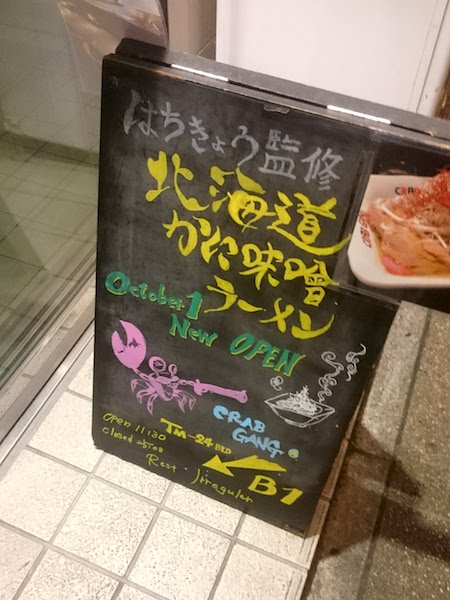 はちきょう監修
北海道
かに味噌
ラーメン
October 1
New OPEN
CRAB
GANG
TM-24 BLD
Open 11:30
closed 25:00
Rest. Irregular
B1